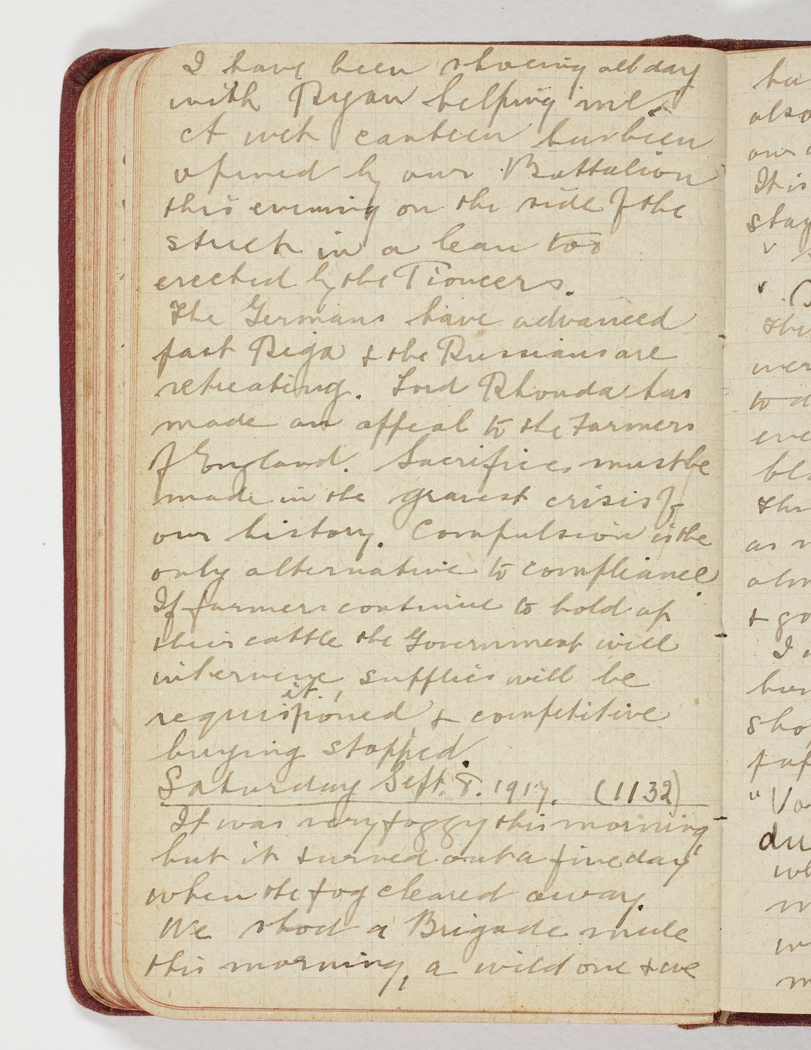 I have been shoeing all day
with Ryan helping me.
A wet canteen has been
opened by our Battalion
this evening on the side of the
in a lean too
erected by the Pioneers.
The Germans have advanced
past Riga & the Russians are
retreating. Lord Rhonda has
made an appeal to the Farmers
of England. Sacrifices must be
made in the gravest crisis of
our history. Compulsion is the
only alternative to compliance.
If farmers continue to hold up
their cattle the Government will
intervene, supplies will be
requisitioned & competitive
buying stopped.
Saturday Sept. 8. 1917. (1132)
It was very foggy this morning
but it turned out a fine day
when the fog cleared away.
We shod a Brigade mule
this morning, a wild one & we
also
It is
to d
as
& go
I
du